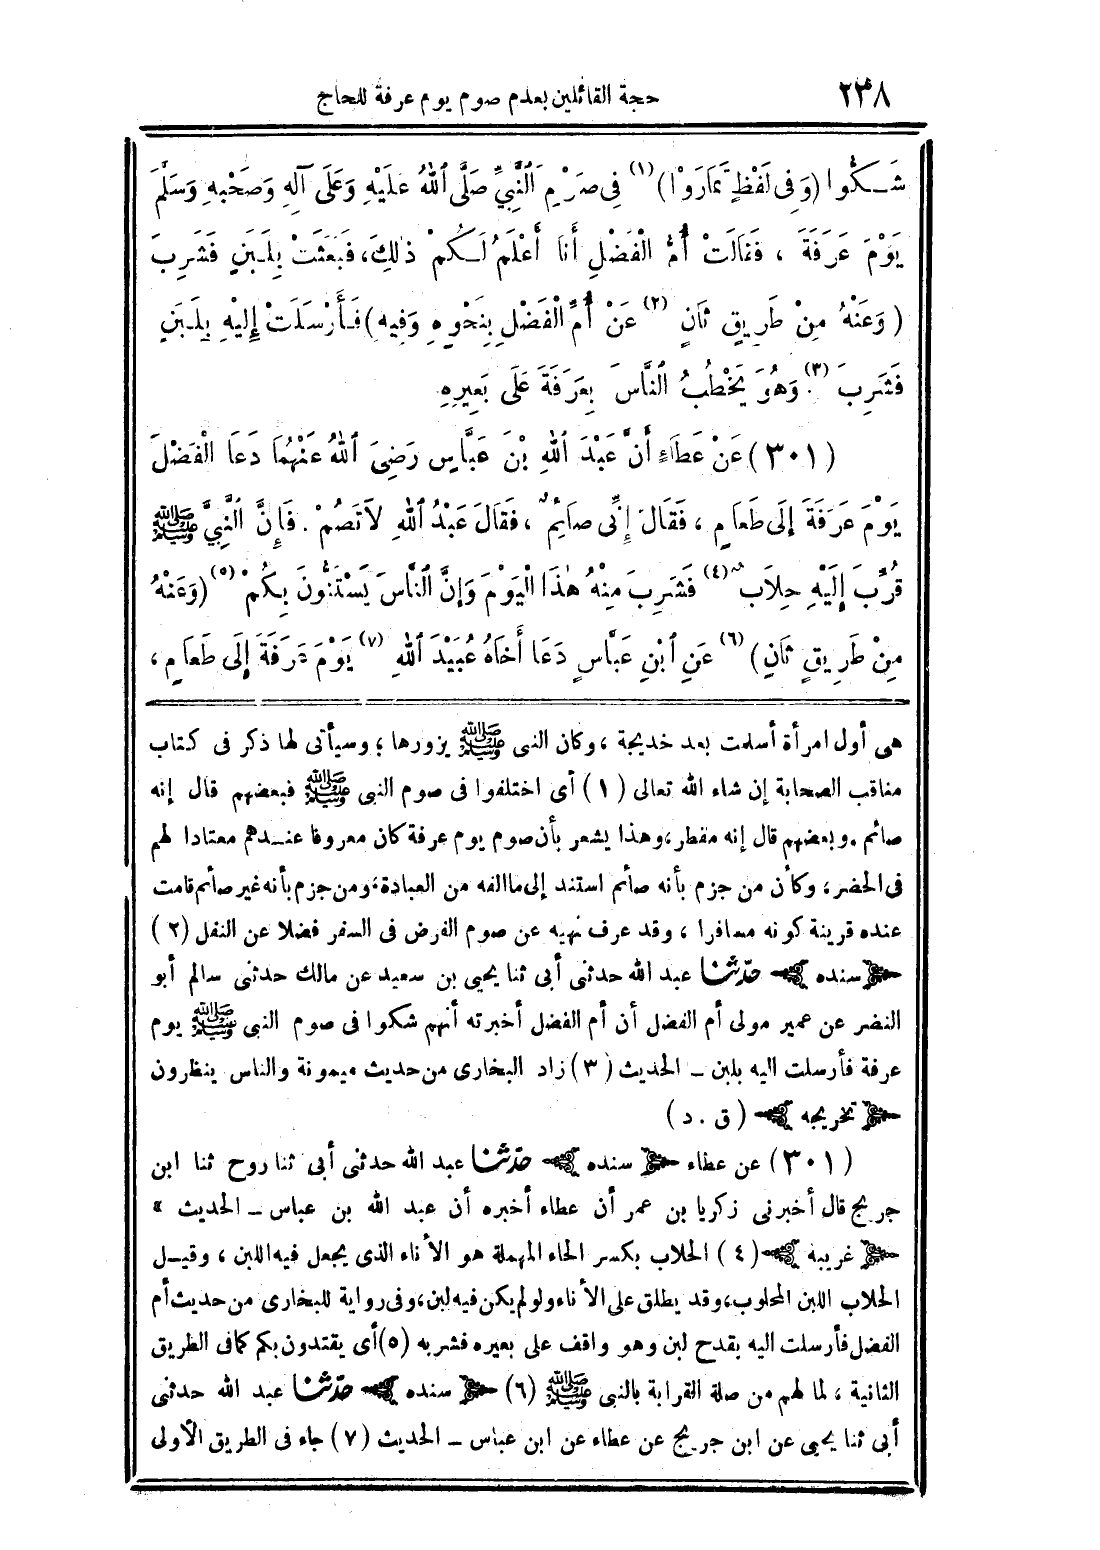 ٢٣٨ حجة القائلين بعدم صوم يوم عرفة للحاج
شَكُّوا (وَفِى لَفْظٍ تَمَارَوْا) (١) فِى صَوْمِ النَّبِيِّ صَلَّى اللهُ عَلَيْهِ وَعَلَى آلِهِ وَصَحْبِهِ وَسَلَّمَ
يَوْمَ عَرَفَةَ ، فَقَالَتْ أُمُّ الْفَضْلِ أَنَا أَعْلَمُ لَكُمْ ذٰلِكَ، فَبَعَثَتْ بِلَبَنٍ فَشَرِبَ
( وَعَنْهُ مِنْ طَرِيقٍ ثَانٍ (٢) عَنْ أُمِّ الْفَضْلِ بِنَحْوِهِ وَفِيهِ) فَأَرْسَلَتْ إِلَيْهِ بِلَبَنٍ
فَشَرِبَ (٣) وَهُوَ يَخْطُبُ النَّاسَ بِعَرَفَةَ عَلَى بَعِيرِهِ.
(٣٠١) عَنْ عَطَاءٍ أَنَّ عَبْدَ اللهِ بْنَ عَبَّاسٍ رَضِىَ اللهُ عَنْهُمَا دَعَا الْفَضْلَ
يَوْمَ عَرَفَةَ إِلَى طَعَامٍ ، فَقَالَ إِنِّى صَائِمٌ ، فَقَالَ عَبْدُ اللهِ لَا تَصُمْ . فَإِنَّ النَّبِيَّ ﷺ
قُرِّبَ إِلَيْهِ حِلَابٌ (٤) فَشَرِبَ مِنْهُ هٰذَا الْيَوْمَ وَإِنَّ النَّاسَ يَسْتَنُّونَ بِكُمْ (٥) (وَعَنْهُ
مِنْ طَرِيقٍ ثَانٍ) (٦) عَنِ ابْنِ عَبَّاسٍ دَعَا أَخَاهُ عُبَيْدَ اللهِ (٧) يَوْمَ عَرَفَةَ إِلَى طَعَامٍ ،
هى أول امرأة أسلمت بعد خديجة ، وكان النبى ﷺ يزورها ؛ وسيأتى لها ذكر فى كتاب
مناقب الصحابة إن شاء الله تعالى (١) أى اختلفوا فى صوم النبى ﷺ فبعضهم قال إنه
صائم . وبعضهم قال إنه مفطر، وهذا يشعر بأن صوم يوم عرفة كان معروفا عندهم معتادا لهم
فى الحضر ، وكأن من جزم بأنه صائم استند إلى ماالفه من العبادة، ومن جزم بأنه غير صائم قامت
عنده قرينة كونه مسافرا ، وقد عرف نهيه عن صوم الفرض فى السفر فضلا عن النفل (٢)
سنده حدّثنا عبد الله حدثنى أبى ثنا يحيى بن سعيد عن مالك حدثنى سالم أبو
النضر عن عمير مولى أم الفضل أن أم الفضل أخبرته أنهم شكوا فى صوم النبى ﷺ يوم
عرفة فأرسلت اليه بلبن ــ الحديث (٣) زاد البخارى من حديث ميمونة والناس ينظرون
تخريجه (ق . د)
(٣٠١) عن عطاء سنده حدّثنا عبد الله حدثنى أبى ثنا روح ثنا ابن
جريج قال أخبرنى زكريا بن عمر أن عطاء أخبره أن عبد الله بن عباس ــ الحديث »
غريبه (٤) الحلاب بكسر الحاء المهملة هو الأناء الذى يجعل فيه اللبن ، وقيل
الحلاب اللبن المحلوب، وقد يطلق على الأناء ولو لم يكن فيه لبن، وفى رواية للبخارى من حديث أم
الفضل فأرسلت اليه بقدح لبن وهو واقف على بعيره فشربه (٥) أى يقتدون بكم كما فى الطريق
الثانية ، لما لهم من صلة القرابة بالنبى ﷺ (٦) سنده حدّثنا عبد الله حدثنى
أبى ثنا يحيى عن ابن جريج عن عطاء عن ابن عباس ــ الحديث (٧) جاء فى الطريق الأولى